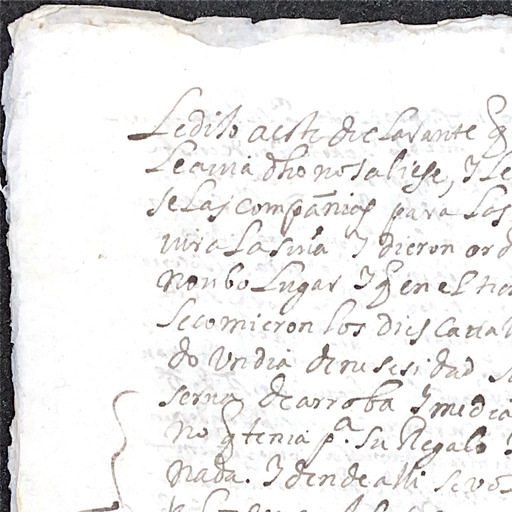 Ledijo aeste declarante q
Leauia dho nosaliese, Y Le
selas compañias para Las
uir a La sitia Y dieron ord
nonubo Lugar Y q en el tie
Secomieron los dies Caual
do Un dia denesesidad
serna de arroba Y media
no q tenia p.ª Su Regalo Y
nada. Y dende alli se vo